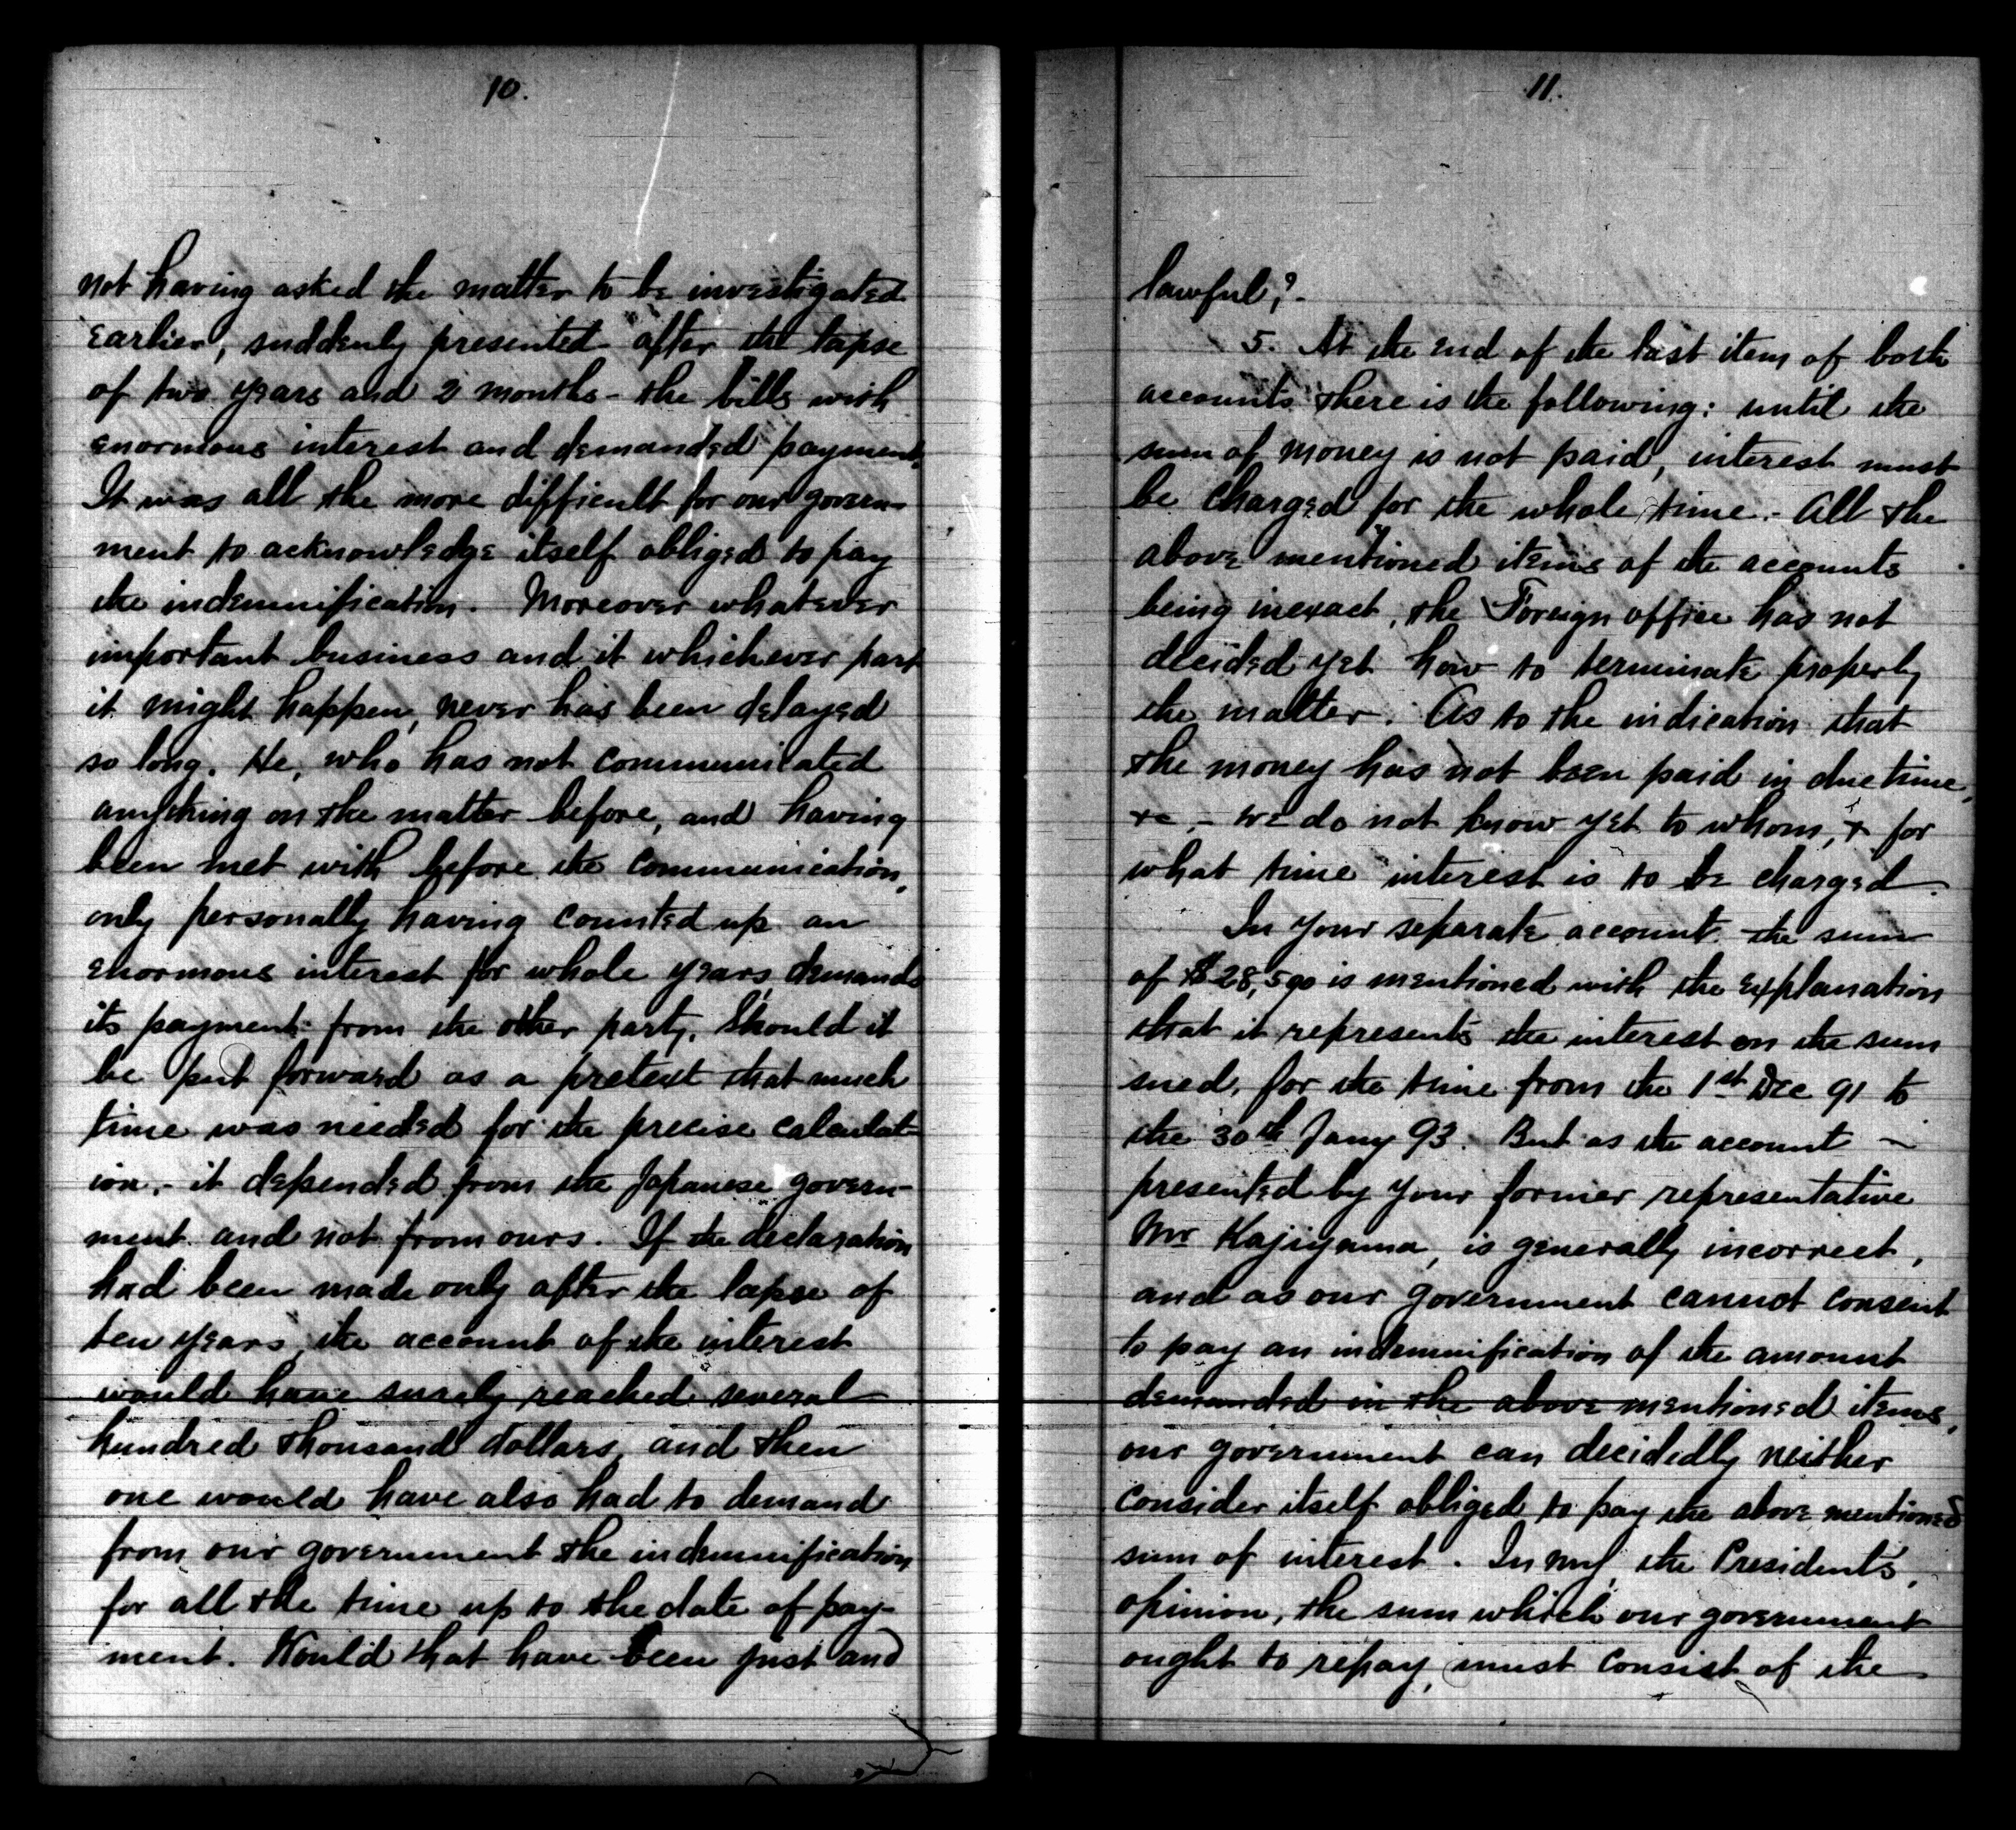 10.
not having asked the matter to be investigated
earlier, suddenly presented after the lapse
of two years and 2 months - the bills with
enormous interest and demanded payment.
It was all the more difficult for our govern-
ment to acknowledge itself obliged to pay
the indemnification. Moreover whatever
important business and it whichever part
it might happen, never has been delayed
so long. He, who has not communicated
anything on the matter before, and having
been met with before the communication,
only personally having counted up an
enormous interest for whole years, demands
its payment from the other party. Should it
be put forward as a pretext that much
time was needed for the precise calculat-
ion, - it depended from the Japanese govern-
ment and not from ours. If the declaration
had been made only after the lapse of
ten years, the account of the interest
would have surely reached several
hundred thousand dollars, and then
one would have also had to demand
from our government the indemnification
for all the time up to the date of pay-
ment. Would that have been just and
11.
lawful?.
5. At the end of the last item of both
accounts there is the following: until the
sum of money is not paid, interest must
be charged for the whole time. - All the
above mentioned items of the accounts
being inexact, the Foreign office has not
decided yet how to terminate properly
the matter. As to the indication that
the money has not been paid in due time,
&c, - we do not know yet to whom, & for
what time interest is to be charged.
In your separate account the sum
of $28,590 is mentioned with the explanation
that it represents the interest on the sum
sued, for the time from the 1st Dec 91 to
the 30th Jany 93. But as the account -
presented by your former representative
Mr Kajiyama, is generally incorrect,
and as our government cannot consent
to pay an indemnification of the amount
demanded in the above mentioned items,
our government can decidedly neither
consider itself obliged to pay the above mentioned
sum of interest. In my, the Presidents,
opinion, the sum which our government
ought to repay, must consist of the